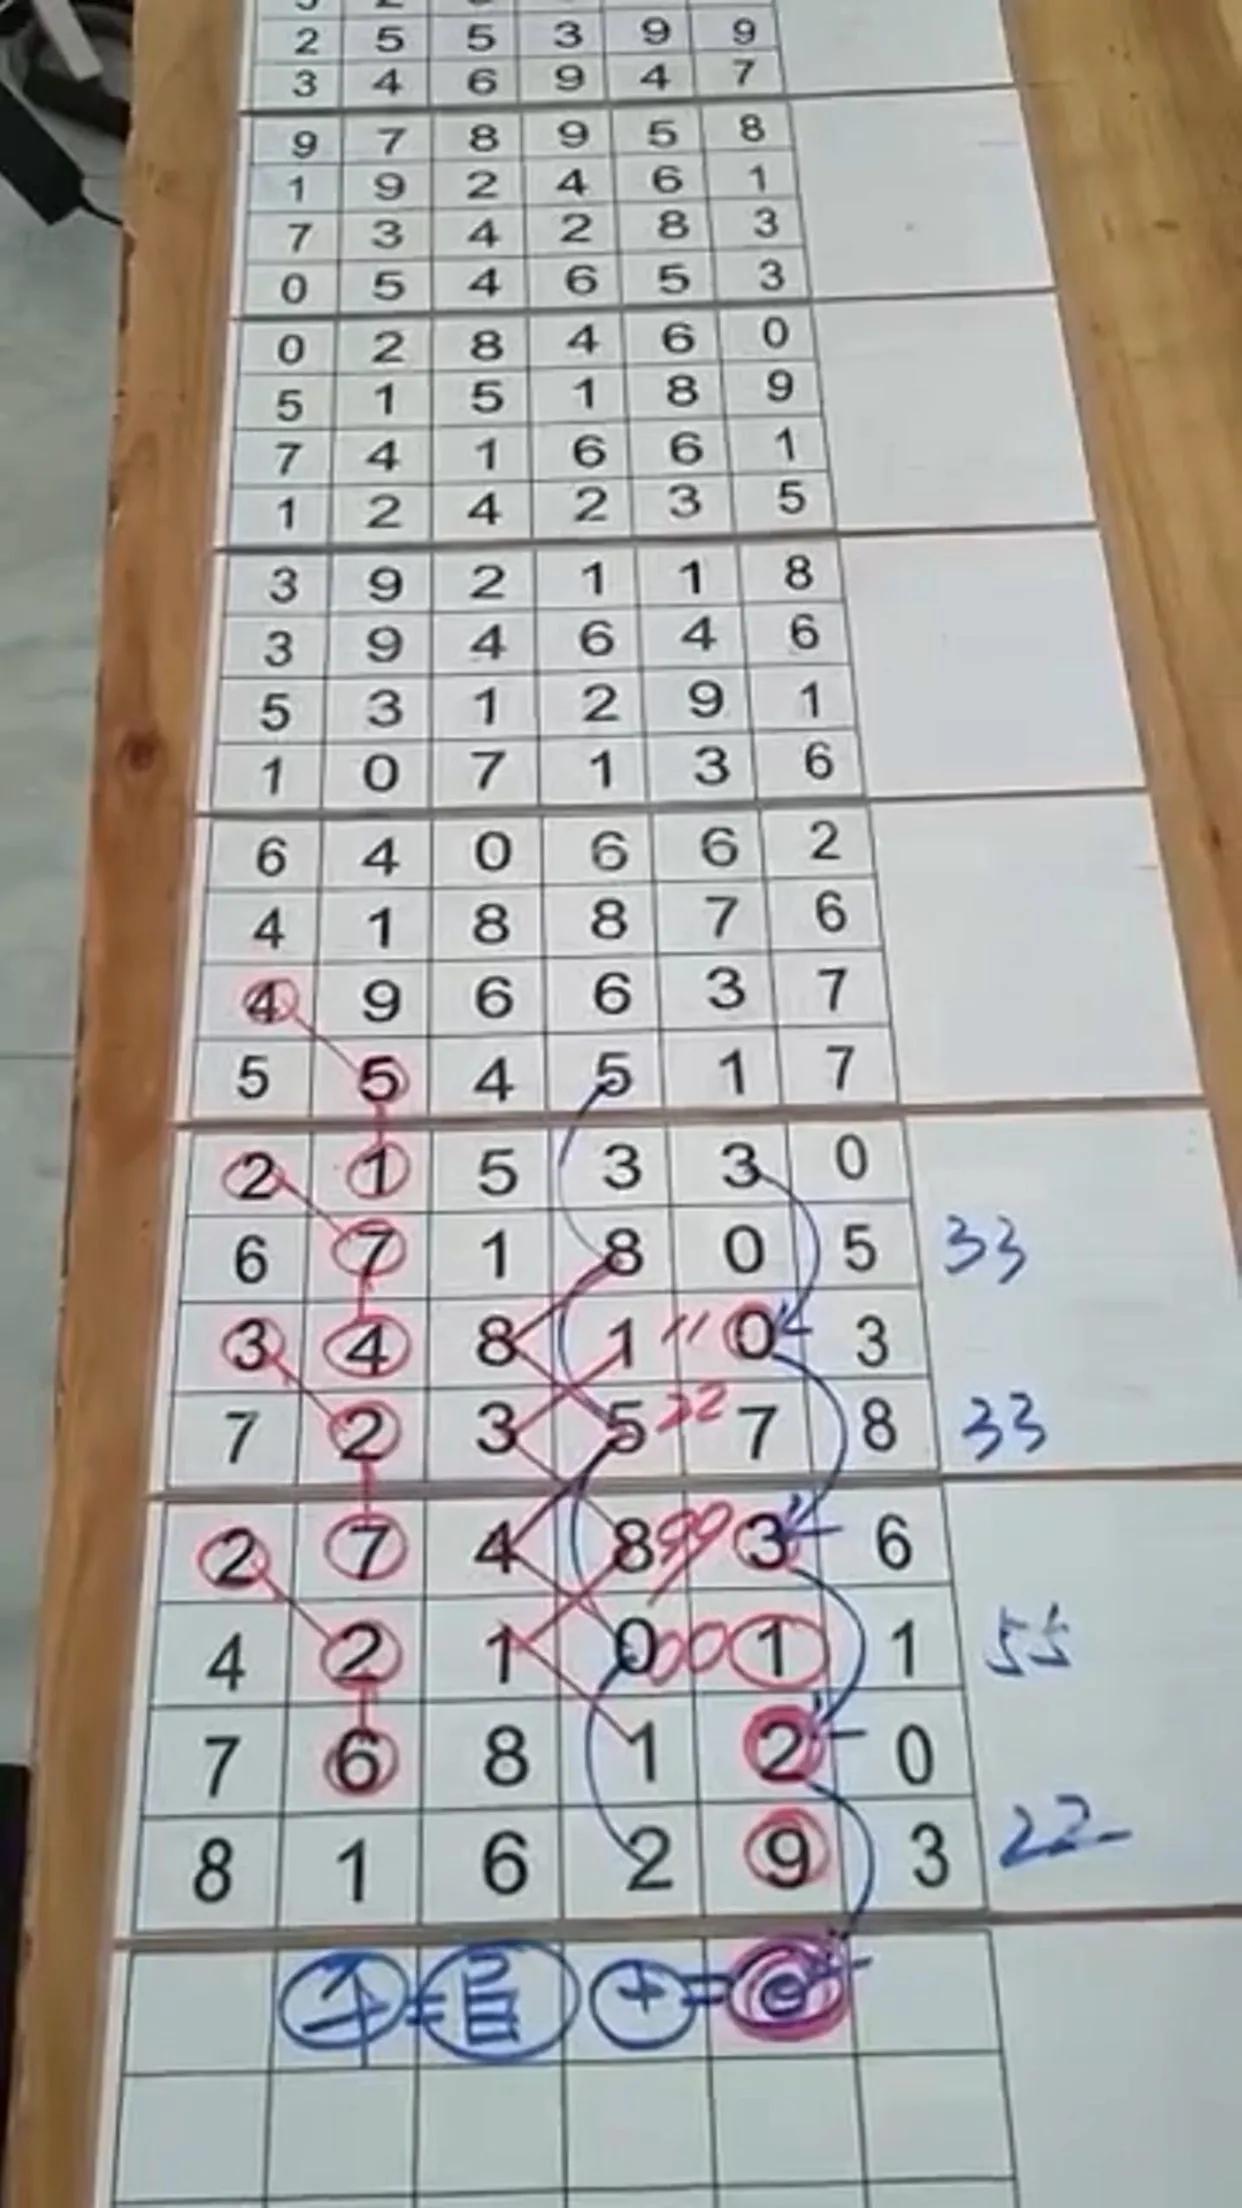 2 5 5 3 9 9
3 4 6 9 4 7
9 7 8 9 5 8
1 9 2 4 6 1
7 3 4 2 8 3
0 5 4 6 5 3
0 2 8 4 6 0
5 1 5 1 8 9
7 4 1 6 6 1
1 2 4 2 3 5
3 9 2 1 1 8
3 9 4 6 4 6
5 3 1 2 9 1
1 0 7 1 3 6
6 4 0 6 6 2
4 1 8 8 7 6
4 9 6 6 3 7
5 5 4 5 1 7
2 1 5 3 3 0
6 7 1 8 0 5 33
3 4 8 1 11 0 3
7 2 3 5 22 7 8 33
2 7 4 8 99 3 6
4 2 1 0 00 1 1 55
7 6 8 1 2 0
8 1 6 2 9 3 22
千 = 百 十 =